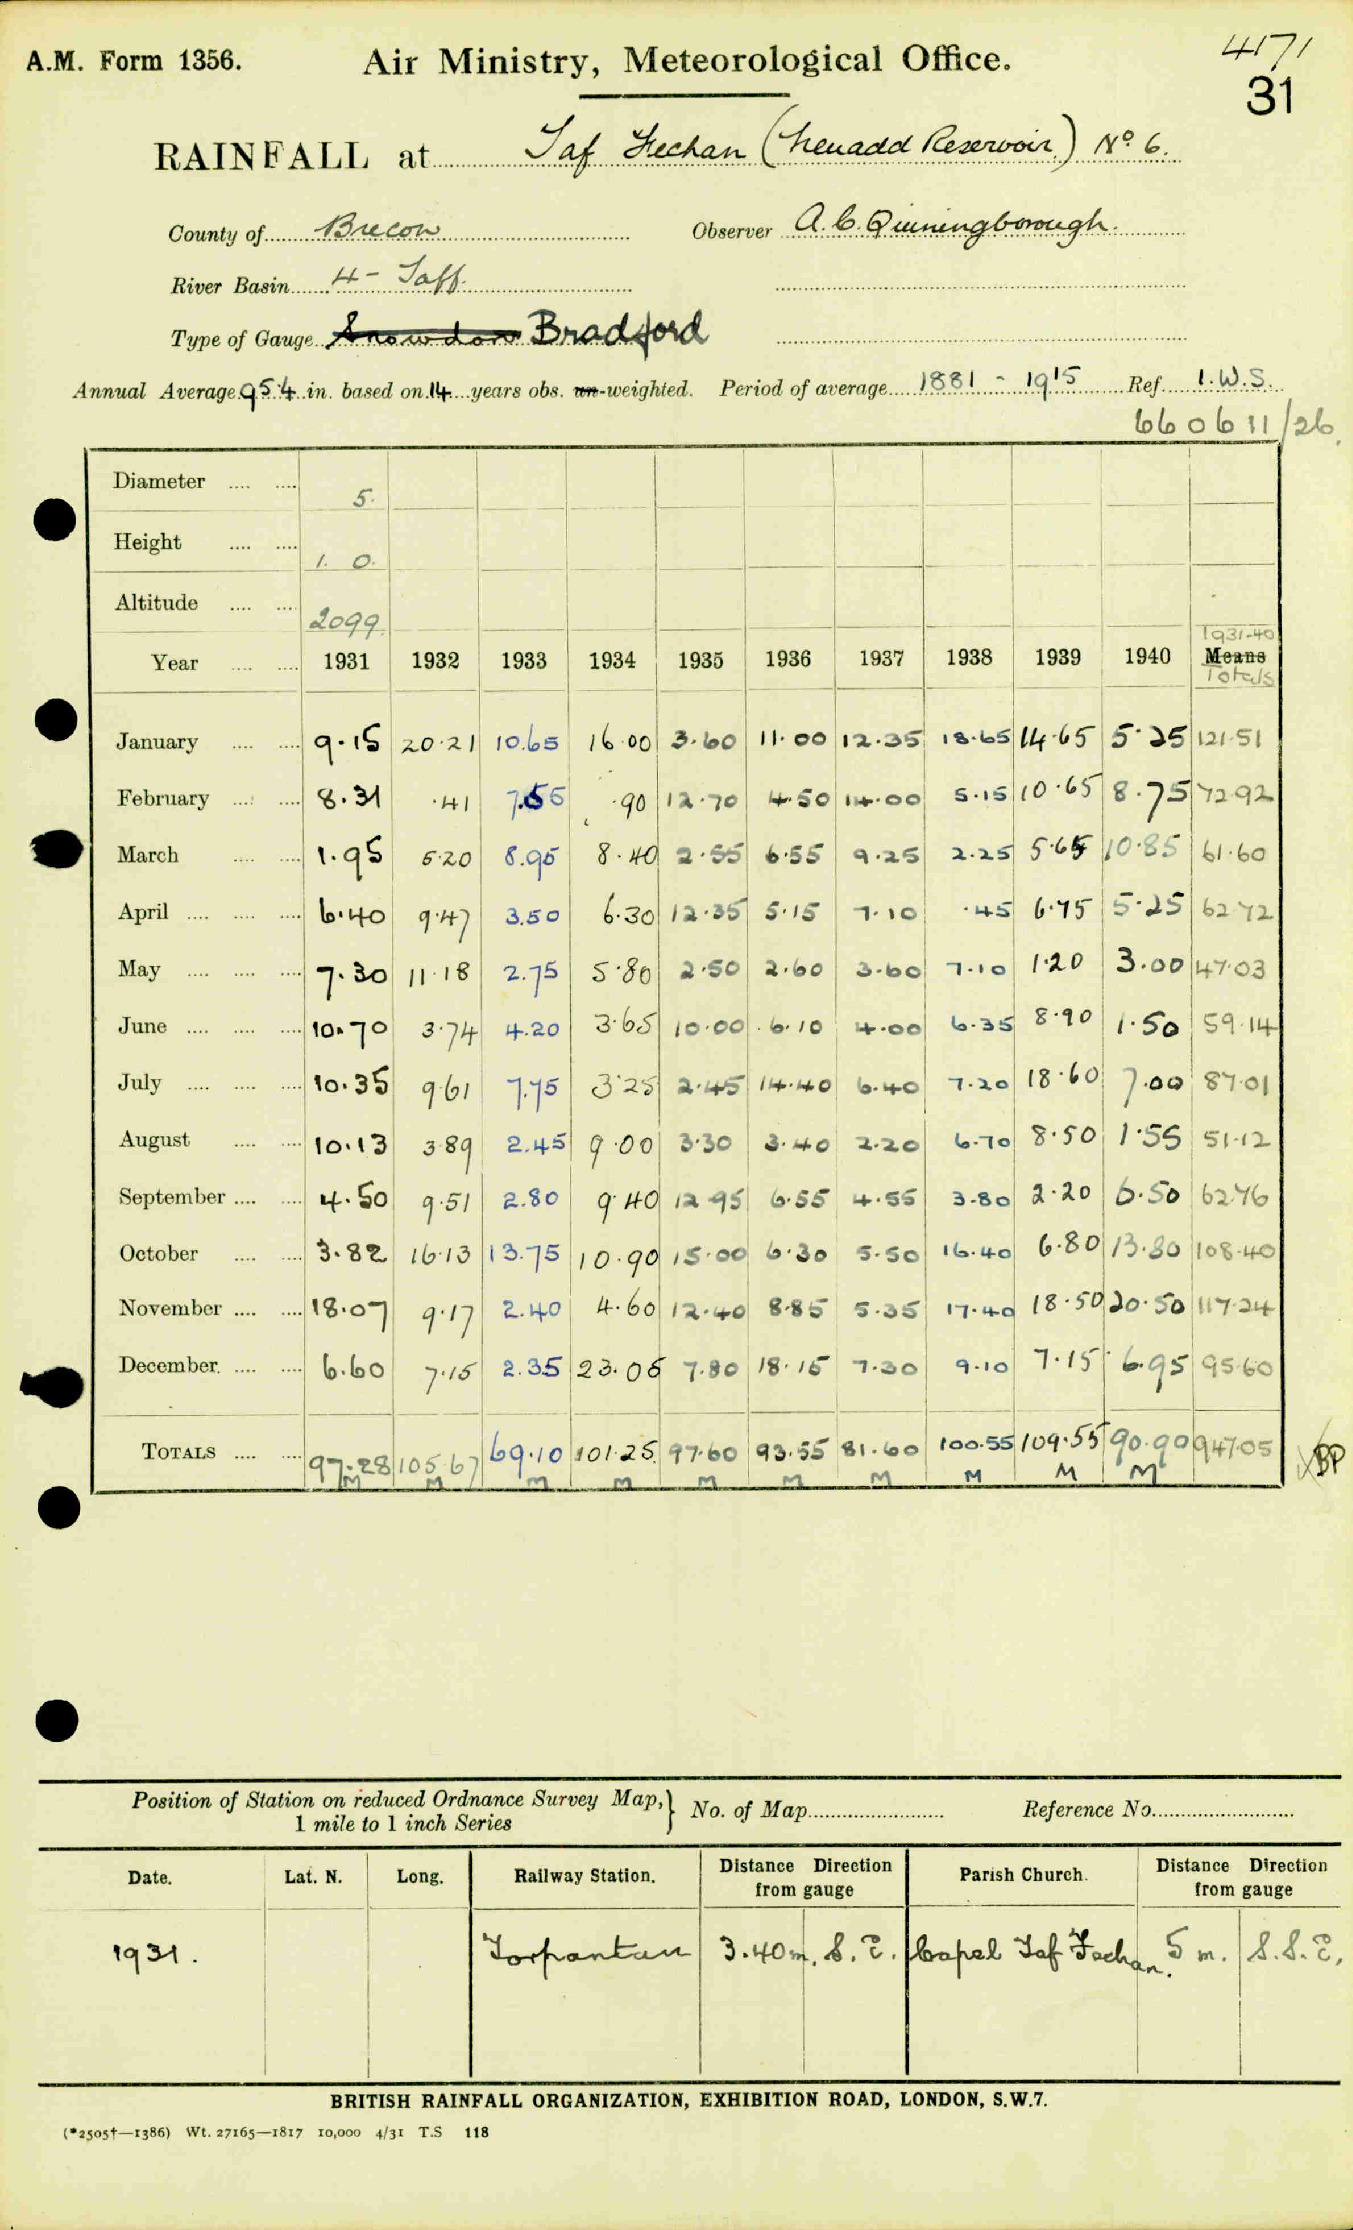 A.M. Form 1356.
Air Ministry, Meteorological Office.
4171
31
RAINFALL at Taf Fechan (Neuadd Reservoir) No 6.
County of Brecon Observer A.C. Quinningborough.
River Basin 4 - Taff.
Type of Gauge Snowdon Bradford
Annual Average 95.4 in. based on 14 years obs. un-weighted. Period of average 1881 - 1915 Ref. I.W.S.
660611/26
Diameter .... .... 5.
Height .... .... 1. 0.
Altitude .... .... 2099
1931-40
Year .... .... 1931 1932 1933 1934 1935 1936 1937 1938 1939 1940 Means
Totals
January .... .... 9.15 20.21 10.65 16.00 3.60 11.00 12.35 18.65 14.65 5.25 121.51
February .... .... 8.31 .41 7.55 .90 12.70 4.50 14.00 5.15 10.65 8.75 72.92
March .... .... 1.95 5.20 8.95 8.40 2.55 6.55 9.25 2.25 5.65 10.85 61.60
April .... .... .... 6.40 9.47 3.50 6.30 12.35 5.15 7.10 .45 6.75 5.25 62.72
May .... .... .... 7.30 11.18 2.75 5.80 2.50 2.60 3.60 7.10 1.20 3.00 47.03
June .... .... .... 10.70 3.74 4.20 3.65 10.00 6.10 4.00 6.35 8.90 1.50 59.14
July .... .... .... 10.35 9.61 7.75 3.25 2.45 14.40 6.40 7.20 18.60 7.00 87.01
August .... .... 10.13 3.89 2.45 9.00 3.30 3.40 2.20 6.70 8.50 1.55 51.12
September .... .... 4.50 9.51 2.80 9.40 12.95 6.55 4.55 3.80 2.20 6.50 62.76
October .... .... 3.82 16.13 13.75 10.90 15.00 6.30 5.50 16.40 6.80 13.80 108.40
November .... .... 18.07 9.17 2.40 4.60 12.40 8.85 5.35 17.40 18.50 20.50 117.24
December. .... .... 6.60 7.15 2.35 23.05 7.80 18.15 7.30 9.10 7.15 6.95 95.60
TOTALS .... .... 97.28 105.67 69.10 101.25 97.60 93.55 81.60 100.55 109.55 90.90 947.05 BP
M M M M M M M M M M
Position of Station on reduced Ordnance Survey Map, } No. of Map Reference No.
1 mile to 1 inch Series
Date. Lat. N. Long. Railway Station. Distance Direction from gauge Parish Church. Distance Direction from gauge
1931. Torpantau 3.40 m. S.E. Capel Taf Fechan. 5 m. S.S.E.
BRITISH RAINFALL ORGANIZATION, EXHIBITION ROAD, LONDON, S.W.7.
(*2505†—1386) Wt. 27165—1817 10,000 4/31 T.S 118